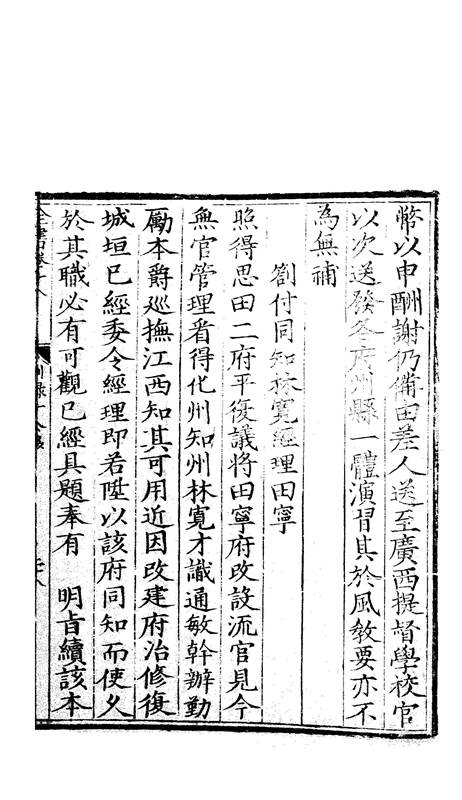 幣以申酬謝仍備由差人送至廣西提督學校官
以次送發各府州縣一體演習其於風敎要亦不
為無補
劄付同知林寬經理田寧
照得思田二府平復議將田寧府改設流官見今
無官管理看得化州知州林寬才識通敏幹辦勤
勵本爵巡撫江西知其可用近因改建府治修復
城垣已經委令經理即若陞以該府同知而使久
於其職必有可觀已經具題奉有 明旨續該本